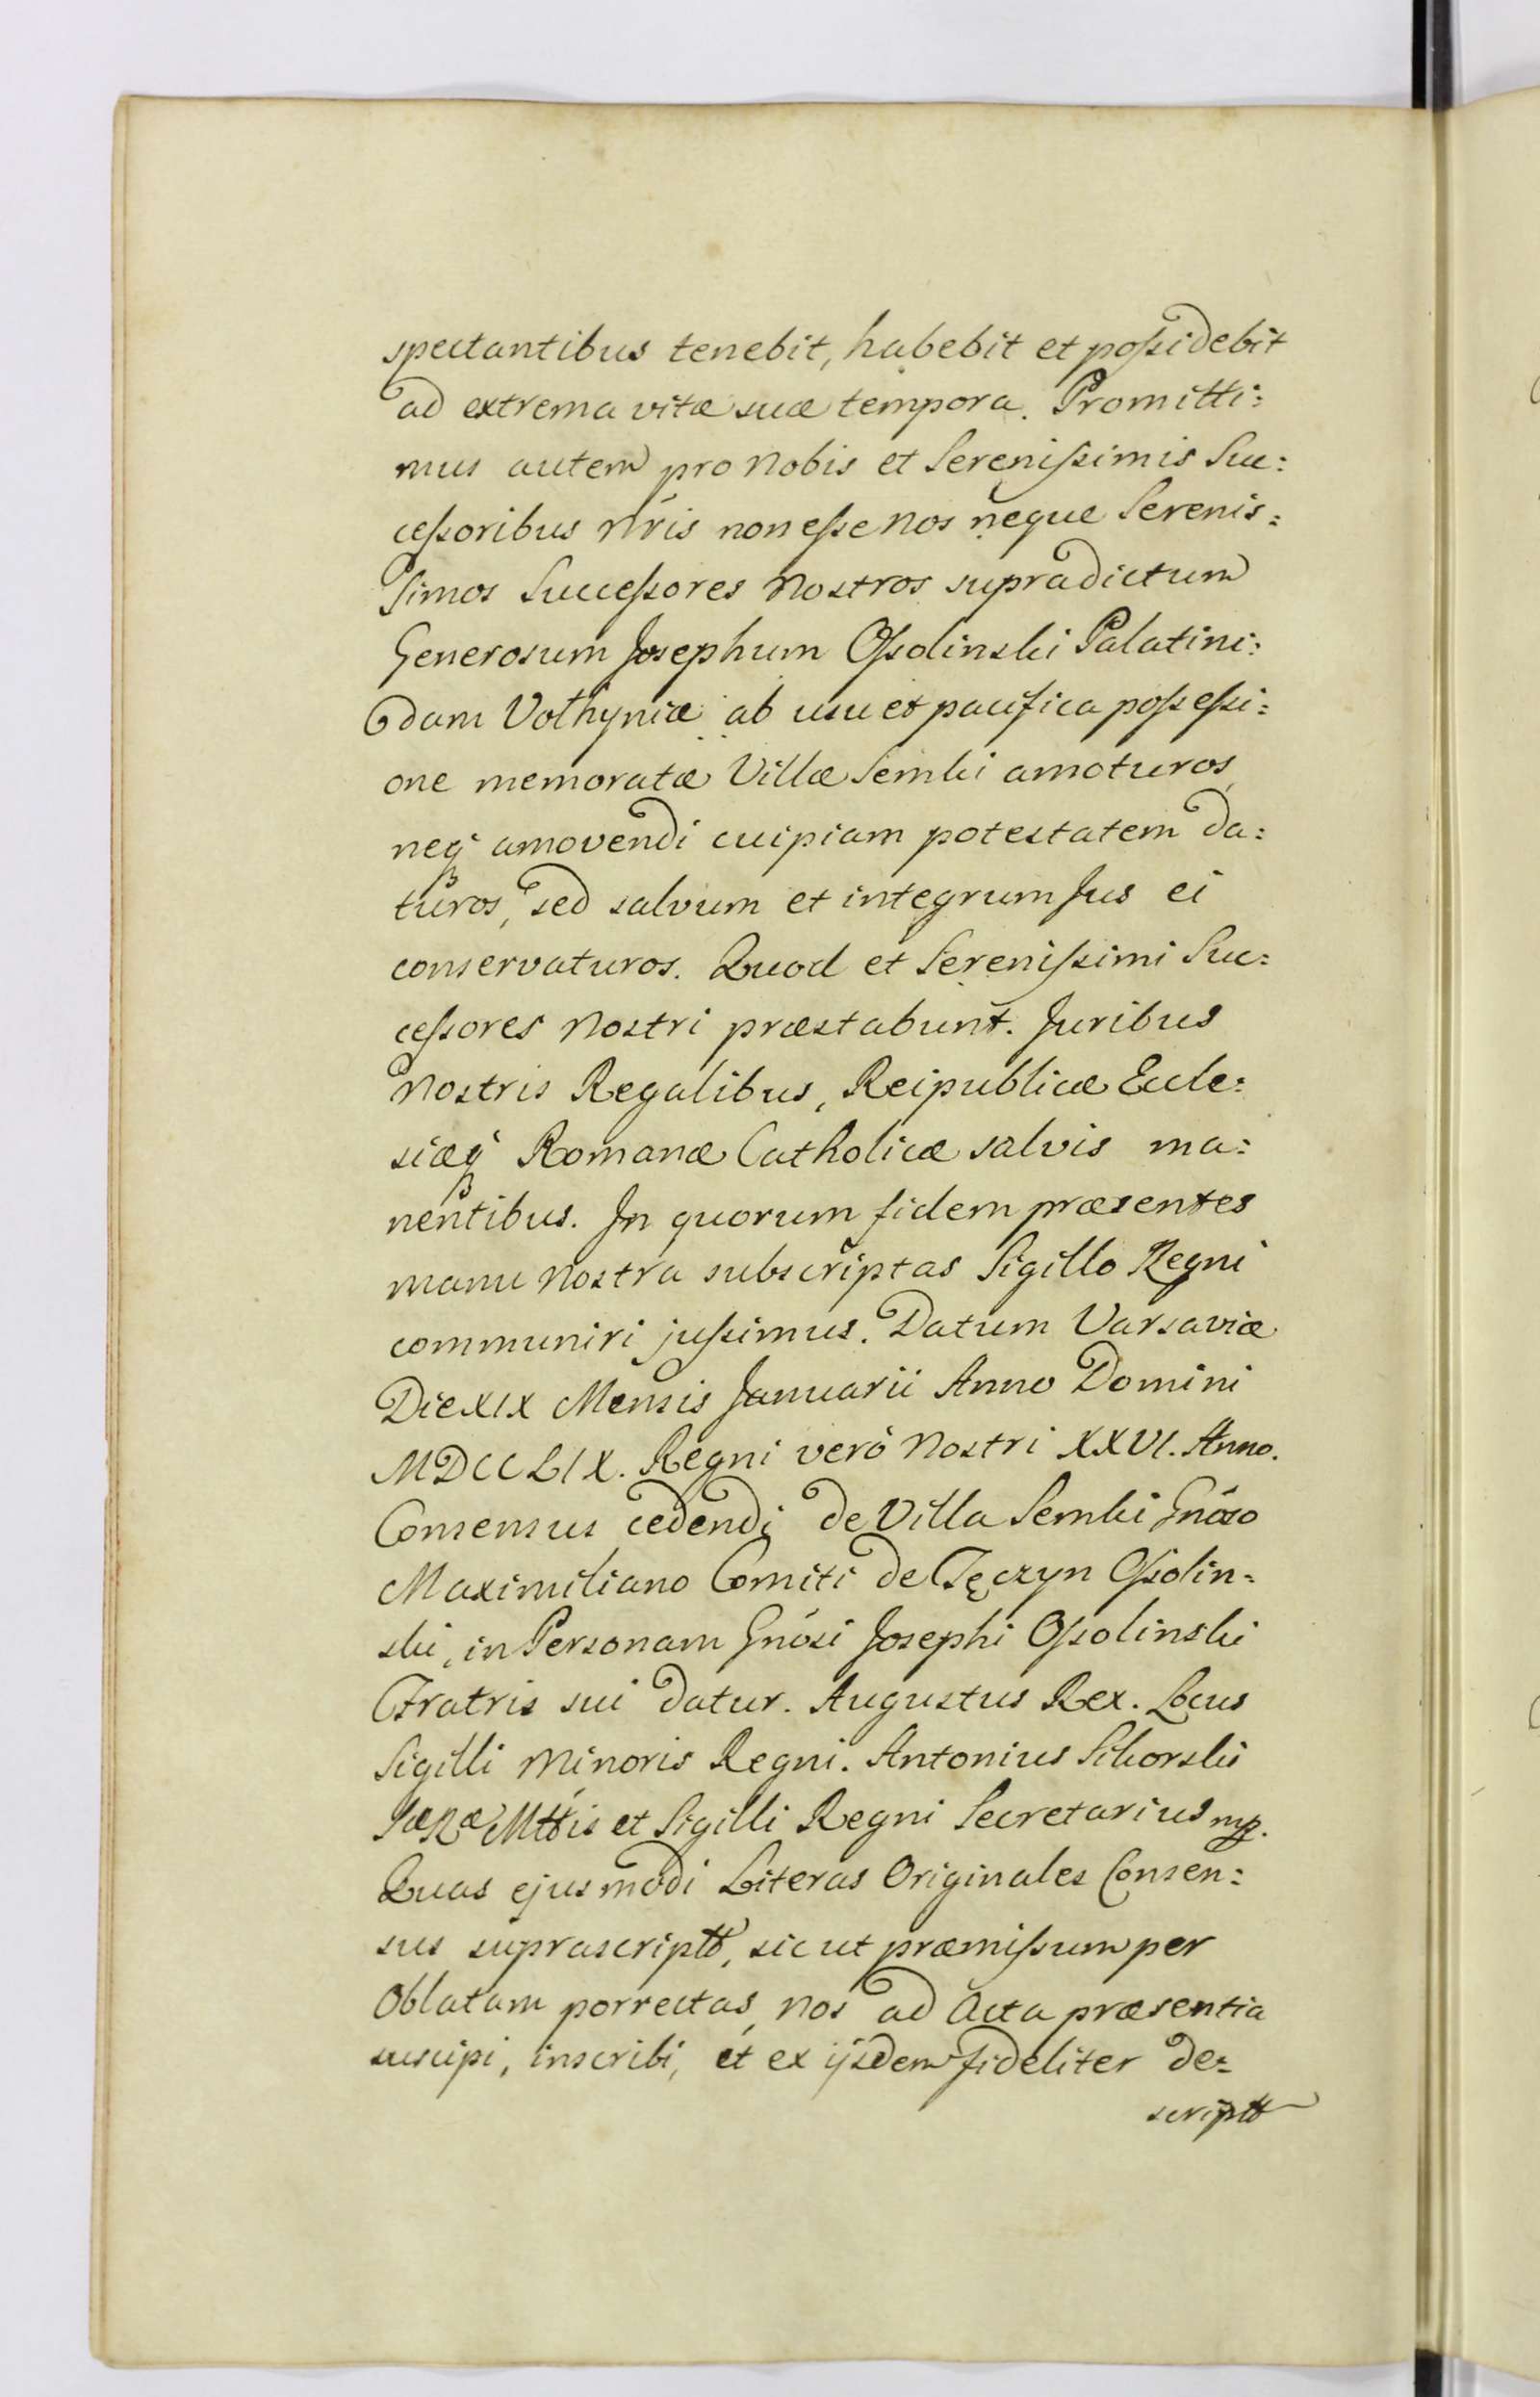 spectantibus tenebit, habebit et poſsidebit
ad extrema vitæ suæ tempora. Promitti:
mus autem pro Nobis et Sereniſsimis Suc:
ceſsoribus Nr̃is non eſse Nos neque Serenis:
simos Succeſsores Nostros supradictum
Generosum Josephum Oſsolinski Palatini:
dam Volhyniæ ab usu et pacifica poſseſsi:
one memoratæ Villæ Semki amoturos,
neq́ amovendi cuipiam potestatem da:
turos, sed salvum et integrum Jus ei
conservaturos. Quod et Sereniſsimi Suc:
ceſsores Nostri præstabunt. Juribus
Nostris Regalibus, Reipublicæ Eccle:
siæq́ Romanæ Catholicæ salvis ma:
nentibus. In quorum fidem præsentes
manu Nostra subscriptas Sigillo Regni
communiri juſsimus. Datum Varsaviæ
Die XIX Mensis Januarii Anno Domini
MDCCLIX. Regni verò Nostri XXVI. Anno.
Consensus cedendi de Villa Semki Gnõso
Maximiliano Comiti de Tęczyn Oſsolin:
ski, in Personam Gnõsi Josephi Oſsolinski
Fratris sui datur. Augustus Rex. Locus
Sigilli Minoris Regni. Antonius Sikorski
SæRæMttis et Sigilli Regni Secretarius mp.
Quas ejusmodi Literas Originales Consen:
sus suprascriptt, sic ut præmiſsum per
Oblatam porrectas, nos ad Acta præsentia
suscipi, inscribi, et ex ijsdem fideliter de:
scriptt